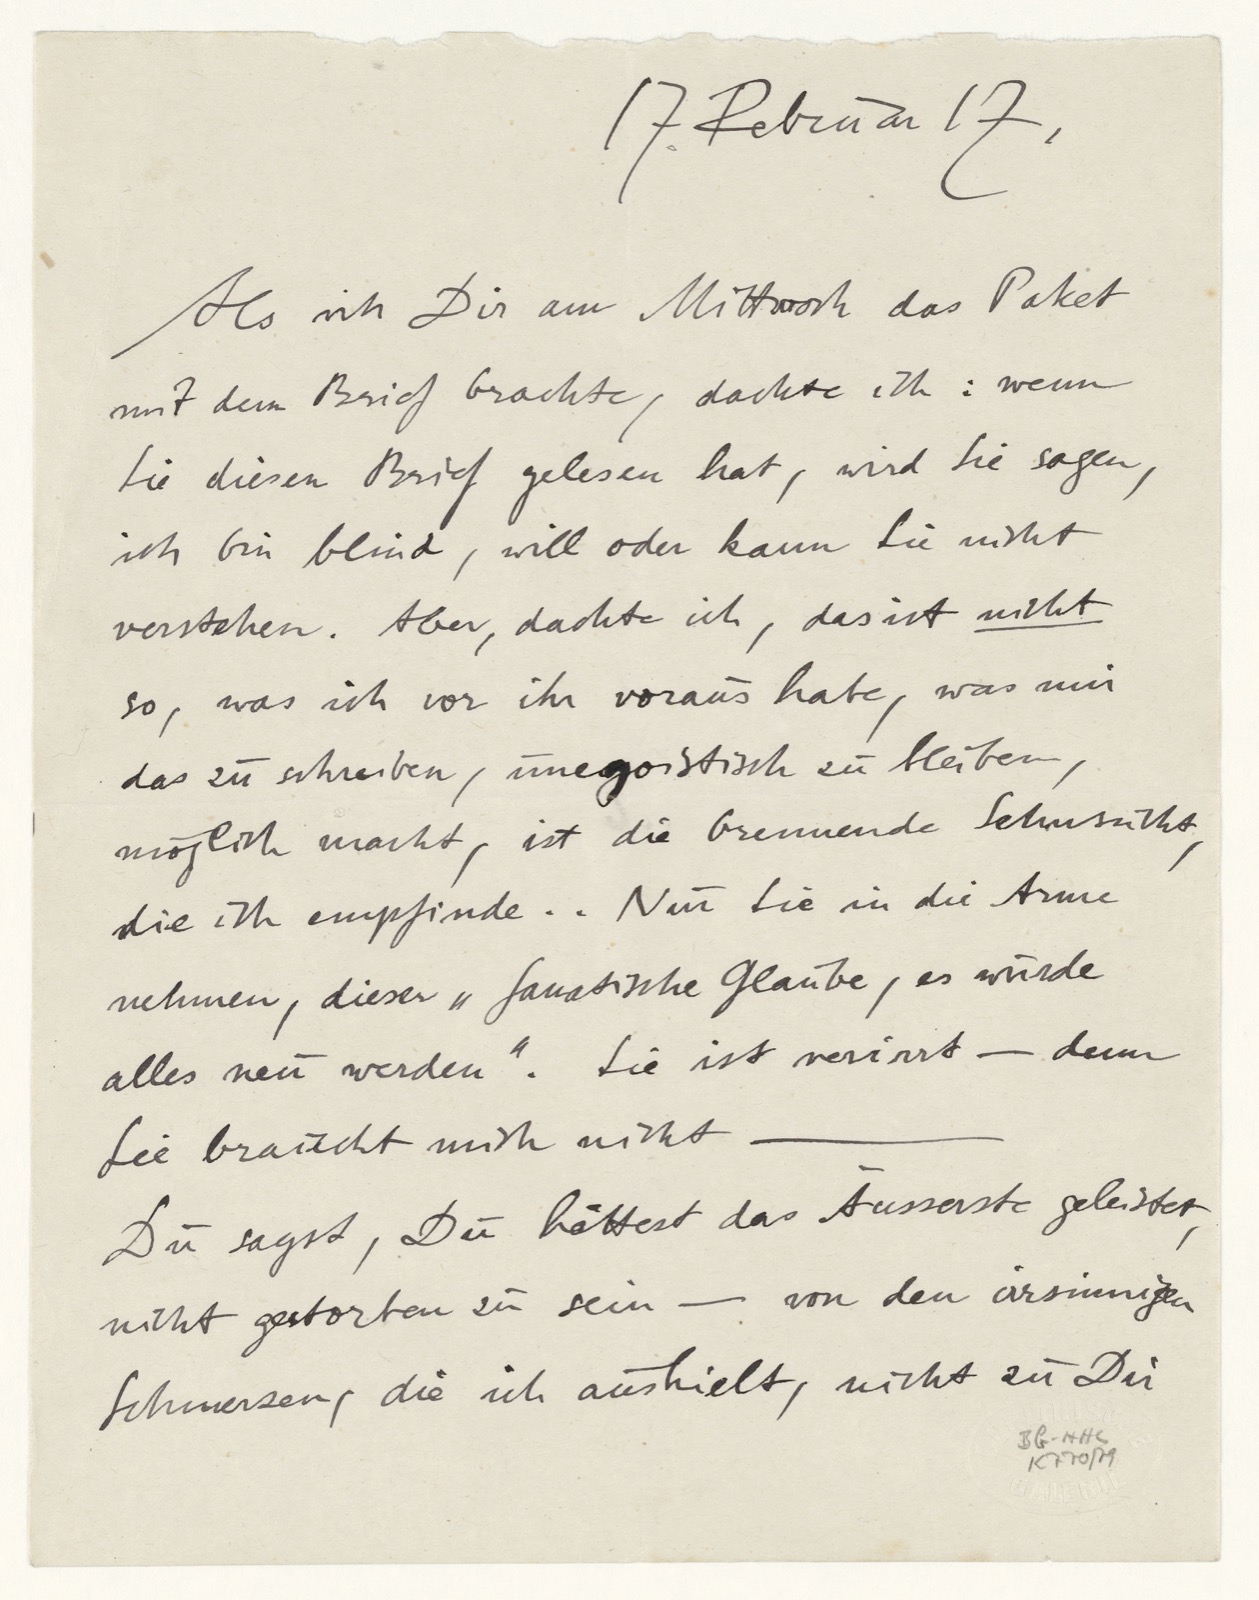 17. Februar 17,
Als ich Dir am Mittwoch das Paket
mit dem Brief brachte, dachte ich : wenn
Sie diesen Brief gelesen hat, wird Sie sagen,
ich bin blind, will oder kann Sie nicht
verstehen. Aber, dachte ich, das ist nicht
so, was ich vor ihr voraus habe, was mir
das zu schreiben, unegoistisch zu bleiben,
möglich macht, ist die brennende Sehnsucht,
die ich empfinde . . Nun Sie in die Arme
nehmen, dieser „fanatische Glaube, es würde
alles neu werden“. Sie ist verirrt — denn
Sie braucht mich nicht ———
Du sagst, Du hättest das Äusserste geleistet,
nicht gestorben zu sein — von den irrsinnigen
Schmerzen, die ich aushielt, nicht zu Dir
BG-HHC
K770/79